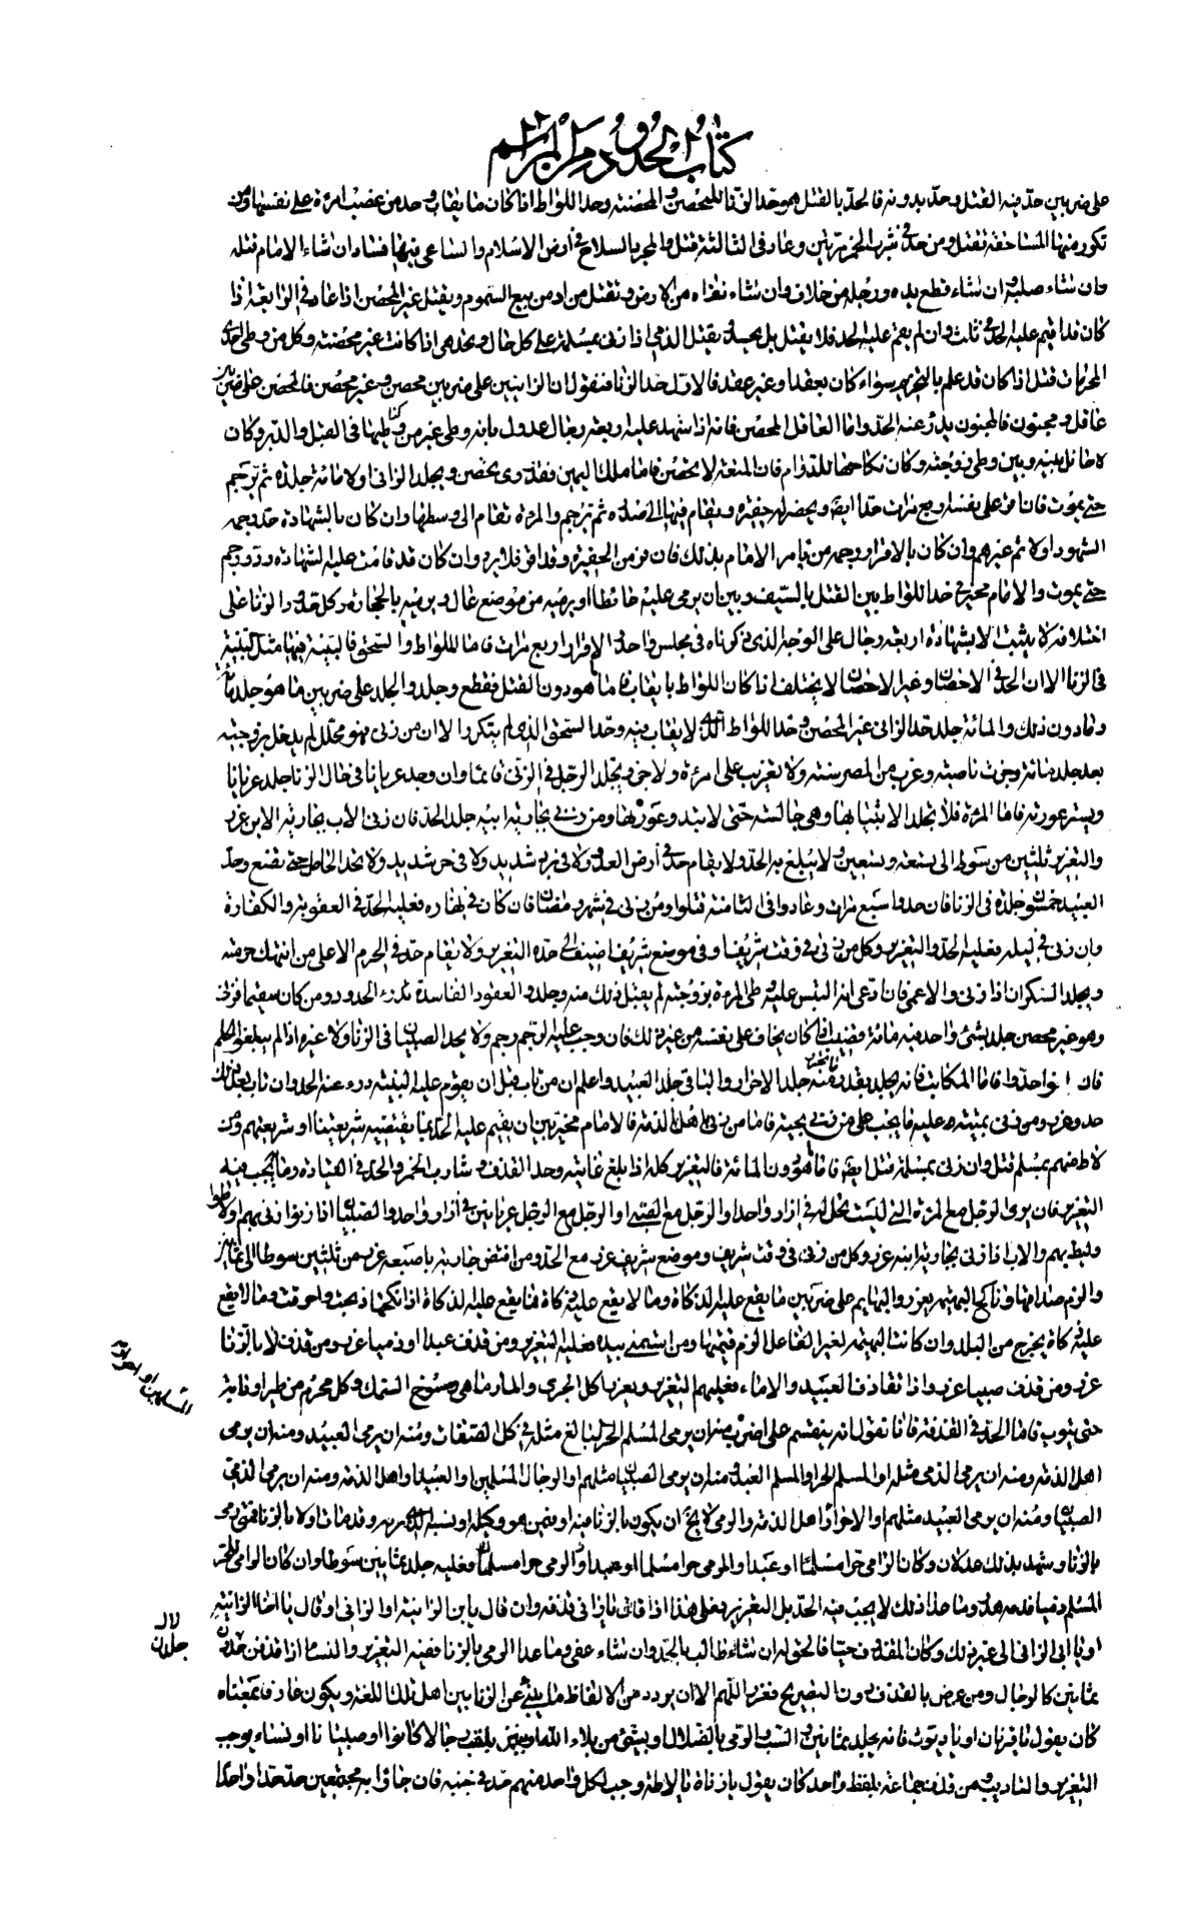 كتاب الحدود من المراسم
على ضربين حد فيه القتل وحد بدونه فالحد بالقتل هو حد الزنا للمحصن والمحصنة وحد اللواط اذا كان ما يقاب وحد من غصب امرءة على نفسها ومن
تكرر منها المساحقة تقتل ومن حد في شرب الخمر مرتين وعاد في الثالثة قتل والمجرد بالسلاح في أرض الاسلام والساعي فيها فسادا ان شاء الامام قتله
وان شاء صلبه وان شاء قطع يده ورجله من خلاف وان شاء نفاه من الارض ويقتل من ادمن بيع السموم ويقتل غير المحصن اذا عاد في الرابعة اذا
كان قد اقيم عليه الحد في ثلث وان لم يقم عليه الحد فلا يقتل بل يحد ويقتل الذمي اذا زنى بمسلمة على كل حال وتحد هي اذا كانت غير محصنة وكل من وطى احدى
المحرمات قتل اذا كان قد علم بالتحريم سواء كان بعقد او غير عقد فالاول حد الزنا فنقول ان الزانيين على ضربين محصن وغير محصن فالمحصن على ضربين
عاقل ومجنون فالمجنون يدرء عنه الحد واما العاقل المحصن فانه اذا شهد عليه اربعة رجال عدول بانه وطى غير من وطيها في القبل والدبر وكان
لا حائل بينه وبين وطى زوجته وكان نكاحها للدوام فان المتعة لا تحصن فاما ملك اليمين فقد روى يحصن ويجلد الزاني اولا مائة جلدة ثم يرجم
حتى يموت فان اقر على نفسه اربع مرات حد ايضا ويحفر له حفيرة ويقام فيها الى صدره ثم ترجم والمرءة تقام الى وسطها وان كان بالشهادة حد رجمه
الشهود اولا ثم غيرهم وان كان بالاقرار رجمه من يامره الامام بذلك فان فر من الحفيرة وقد اقر فلا يرد وان كان قد قامت عليه الشهادة رد ورجم
حتى يموت والامام مخير في حد اللواط بين القتل بالسيف وبين ان يرمي عليه حائطا او يرميه من موضع عال ويرميه بالحجارة وكل حدود الزنا على
اختلافه لا يثبت الا بشهادة اربعة رجال على الوجه الذي ذكرناه في مجلس واحد او الاقرار اربع مرات فاما اللواط والسحق فالبينة فيها مثل البينة
في الزنا الا ان الحد في الاحصان وغير الاحصان لا يختلف اذا كان اللواط بايقاب فاما ما هو دون القتل فقطع وجلد والجلد على ضربين ما هو جلد مائة
وما دون ذلك والمائة جلد حد الزاني غير المحصن وحد اللواط الذي لا يقاب فيه وحد السحق الذي لم يتكرر الا ان من زنى وهو مملك لم يدخل بزوجته
بعد جلد مائة وجزت ناصيته وغرب من المصر سنة ولا تغريب على امرءة ولا جز ويجلد الرجل في الزنى قائما وان وجد عريانا في حال الزنا جلد عريانا
ويستر عورته فاما المرءة فلا تجلد الا بثيابها وهي جالسة حتى لا تبدو عورتها ومن زنى بجارية ابيه جلد الحد فان زنى الاب بجارية الابن عزر
والتعزير ثلثين من سوط الى تسعة وتسعين ولا يبلغ به الحد ولا يقام حد في أرض العدو ولا في برد شديد ولا في حر شديد ولا تحد الحامل حتى تضع وحد
العبيد خمسون جلدة في الزنا فان حدوا سبع مرات وعادوا في الثامنة قتلوا ومن زنى في شهر رمضان فان كان في نهاره فعليه الحد في العقوبة والكفارة
وان زنى في ليله فعليه الحد والتعزير وكل من زنى في وقت شريف او في موضع شريف اضيف الى حده التعزير ولا يقام حد في الحرم الا على من انتهك حرمته
ويجلد السكران اذا زنى والاعمى فان ادعى انه التبس عليه وطى المرءة بزوجته لم يقبل ذلك منه وجلد والعقود الفاسدة تدرء الحدود ومن كان سقيما فزنى
وهو غير محصن جلد بشئ واحد فيه مائة قضيب اذا كان يخاف على نفسه من غير ذلك فان وجب عليه الرجم رجم ولا يحد الصبيان في الزنا ولا غيره اذا لم يبلغوا الحلم
فان واحدوا فاما المكاتب فانه يجلد بقدر ما تحرر منه جلد الاحرار والباقي جلد العبيد واعلم ان من تاب قبل ان يقوم عليه البينة درء عنه الحد وان تاب بعد ذلك
حد وعزر ومن زنى بميتة فعليه ما يجب على من زنى بحية فاما من زنى من اهل الذمة فالامام مخير بين ان يقيم عليه الحد بما يقتضيه شريعتنا او شريعتهم ومن
لاط منهم بمسلم قتل وان زنى بمسلمة قتل ايضا فاما هو دون المائة فالتعزير كله اذا بلغ غايته وحد القذف وشارب الخمر والحد في القيادة وما يجب فيه
التعزير فان يرى الرجل مع المرءة التي ليست بحل له في ازار واحد او الرجل مع الصبي او الرجل مع الرجل عريانين في ازار واحد والصبيان اذا زنوا او زنى بهم او لاطوا
وليط بهم والاب اذا زنى بجارية ابنه عزر وكل من زنى في وقت شريف وموضع شريف عزر مع الحد ومن افتض جارية باصبعه عزر من ثلثين سوطا الى ثمانين
والزم صداقها وناكح البهيمة يعزر والبهايم على ضربين ما يقع عليه الذكاة وما لا يقع عليه ذكاة فما يقع عليه الذكاة اذا نكحها ذبحت واحرقت وما لا يقع
عليه ذكاة يخرج من البلد وان كانت البهيمة لغير الفاعل الزم قيمتها ومن استمنى بيده فعليه التعزير ومن قذف عبدا او ذميا عزر ومن قذف لا بالزنا
عزر ومن قذف صبيا عزر واذا تقاذف العبيد والاماء فعليهم التعزير ويعزر اكل الجرى والمارماهى ومسوخ السمك وكل محرم من طير او دابة
حتى يتوب فاما الحد في القذفة فانا نقول انه ينقسم على اضرب منه ان يرمى المسلم الحر البالغ مثله في كل الصفات ومنه ان يرمى العبيد ومنه ان يرمى
اهل الذمة ومنه ان يرمى الذمي مثله او المسلم الحر او المسلم العبد ومنه ان يرمى الصبيان مثلهم او الرجال المسلمين او العبيد او اهل الذمة ومنه ان يرمى الذمي
الصبيان ومنه ان يرمى العبيد مثلهم او الاحرار او اهل الذمة والرمى لا يخ ان يكون بالزنا منه وقد مات او لا بالزنا فمتى رمى
بالزنا وشهد بذلك عدلان وكان الرامى حرا مسلما او عبدا والمرمى حرا مسلما فعليه جلد ثمانين سوطا وان كان الرامى للحر
المسلم ذميا وما عدا ذلك لا يجب فيه الحد بل التعزير فعلى هذا اذا قال يا زاني قذفه وان قال يا بن الزانية او الزاني او قال يا اخا الزانية
او يا ابا الزاني الى غير ذلك وكان المقذوف حيا فالحق له ان شاء طالب بالحد وان شاء عفى وما عدا الرمى بالزنا ففيه التعزير والنساء اذا قذفن جلدن
ثمانين كالرجال ومن عرض بالقذف دون التصريح فعزر اللهم الا ان يورد من الالفاظ ما ينبئ عن الزنا بين اهل تلك اللغة ويكون عارفا بمعناه
كان يقول يا قرنان او يا ديوث فانه يجلد ثمانين والسب والرمى بالضلال او بشئ من بلاء الله او نبز بلقب رجالا كانوا او صبيانا او نساء يوجب
التعزير والتاديب ومن قذف جماعة بلفظ واحد كان يقول يا زناة يا لاطة وجب لكل واحد منهم حد في جنبه فان جاؤا به مجتمعين حد حدا واحدا